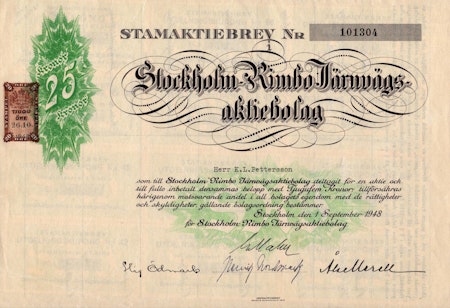 STAMAKTIEBREV Nr 101304
Kronor
25
Kronor
TJUGO
ÖRE
Stockholm-Rimbo Järnvägs-
aktiebolag
Herr E.L.Pettersson
som till Stockholm-Rimbo Järnvägsaktiebolag deltagit för en aktie och
till fullo inbetalt densammas belopp med Tjugufem Kronor, tillförsäkras
härigenom motsvarande andel i all bolagets egendom med de rättigheter
och skyldigheter, gällande bolagsordning bestämmer.
Stockholm den 1 September 1948
för Stockholm-Rimbo Järnvägsaktiebolag: